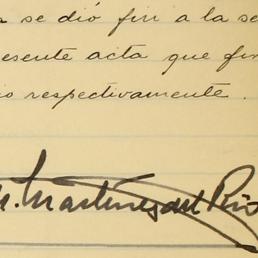 se dió fin a la se
esente acta que fir
io respectivamente.
Martínez del Río